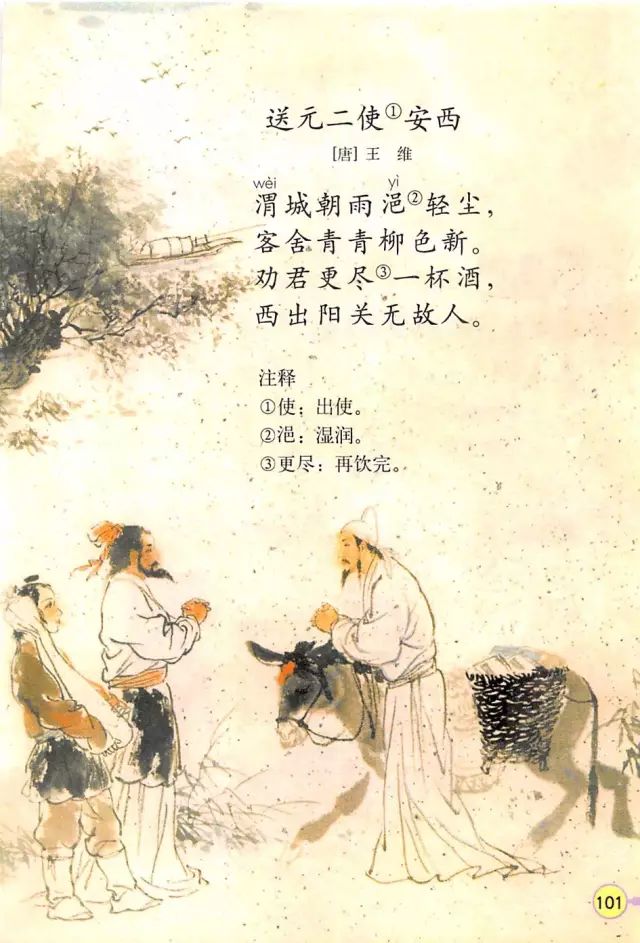 送元二使①安西
[唐] 王 维
wèi yì
渭城朝雨浥②轻尘，
客舍青青柳色新。
劝君更尽③一杯酒，
西出阳关无故人。
注释
①使：出使。
②浥：湿润。
③更尽：再饮完。
101